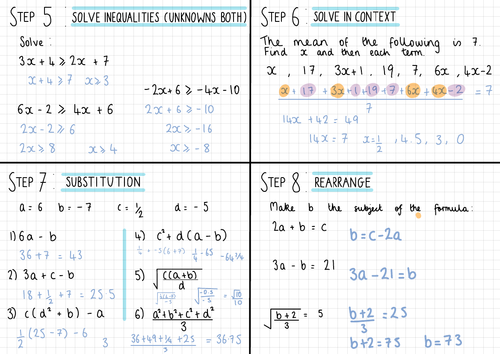 STEP 5 : SOLVE INEQUALITIES (UNKNOWNS BOTH)
Solve :
3x + 4 ⩾ 2x + 7
x + 4 ⩾ 7   x ⩾ 3
6x - 2 ⩾ 4x + 6
2x - 2 ⩾ 6
2x ⩾ 8   x ⩾ 4
-2x + 6 ⩾ -4x - 10
2x + 6 ⩾ -10
2x ⩾ -16
x ⩾ -8
STEP 6 : SOLVE IN CONTEXT
The mean of the following is 7.
Find x and then each term.
x , 17, 3x+1, 19, 7, 6x, 4x-2
x + 17 + 3x+1 + 19 + 7 + 6x + 4x-2 = 7
7
14x + 42 = 49
14x = 7   x = 1/2 , 4.5, 3, 0
STEP 7 : SUBSTITUTION
a = 6   b = -7   c = 1/2   d = -5
1) 6a - b
36 + 7 = 43
2) 3a + c - b
18 + 1/2 + 7 = 25.5
3) c(d² + b) - a
1/2 (25 - 7) - 6   3
4) c² + d(a - b)
5) √((c(a+b))/d)
6) (a² + b² + c² + d²)/3
(36 + 49 + 1/4 + 25)/3 = 36.75
STEP 8 : REARRANGE
Make b the subject of the formula:
2a + b = c   b = c - 2a
3a - b = 21   3a - 21 = b
√((b+2)/3) = 5   (b+2)/3 = 25
b + 2 = 75   b = 73